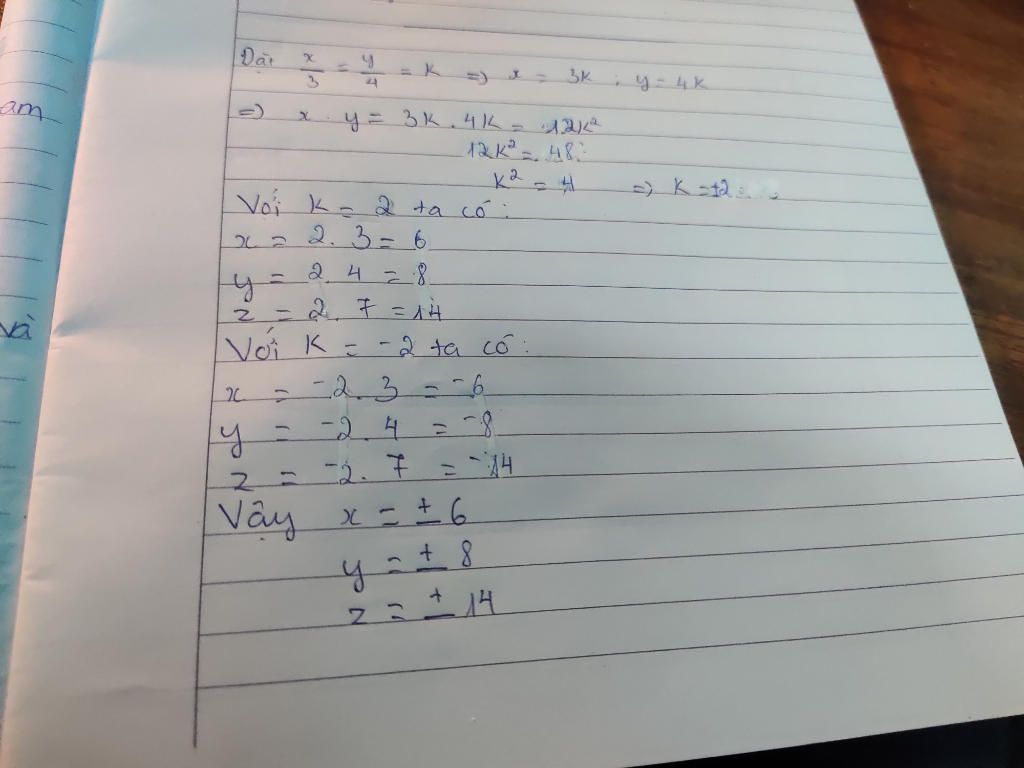 am
và
Đặt x/3 = y/4 = K => x = 3K ; y = 4K
=> x . y = 3K . 4K = 12K²
12K² = 48
K² = 4 => K = ±2
Với K = 2 ta có:
x = 2. 3 = 6
y = 2. 4 = 8
z = 2. 7 = 14
Với K = -2 ta có:
x = -2. 3 = -6
y = -2. 4 = -8
z = -2. 7 = -14
Vậy x = ± 6
y = ± 8
z = ± 14